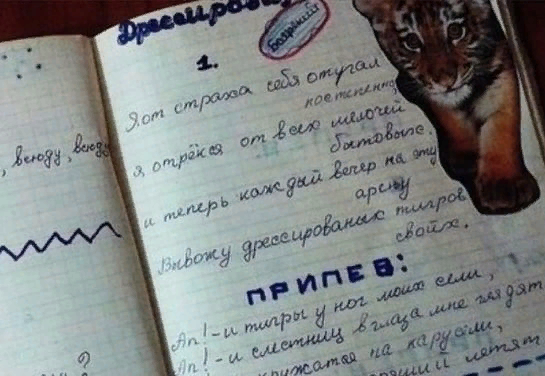 Боярский
1.
Я от страха себя отучал
постепенно,
я отрёкся от всех мелочей
бытовых.
и теперь каждый вечер на эту
арену
Вывожу дрессированых тигров
своих.
ПРИПЕВ:
Ап! - и тигры у ног моих сели,
Ап! - и с лестниц в глаза мне глядят
кружатся на карусели,
летят
, всюду, всюду
?